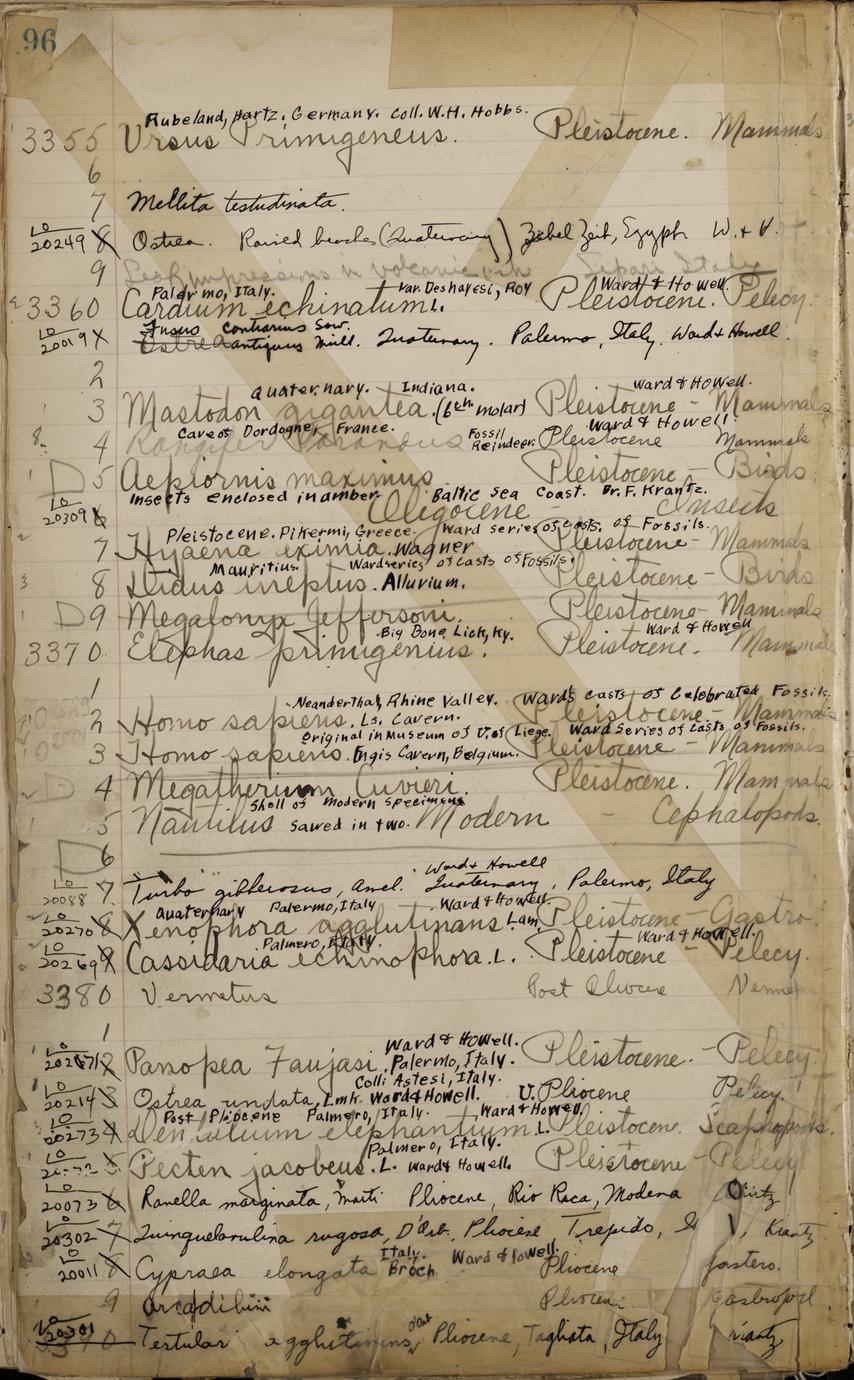 96
Rubeland, Hartz. Germany. Coll. W.H. Hobbs.
3355 Ursus Primigeneus. Pleistocene. Mammals
6
7 Mellita testudinata.
LO 20249 8 Ostrea. Raised beaches (Quaternary) Zebel Zeit, Egypt W. & H.
9 Leaf impressions in volcanic ash Lipari Italy
Palermo, Italy. var. Deshayesi, Roy Ward & Howell.
3360 Cardium echinatum L. Pleistocene. Pelecy.
Fusus contrarius Sow.
LO 20019 X Ostrea antiquus Mull. Quaternary. Palermo, Italy, Ward & Howell.
2
Quaternary. Indiana. Ward & Howell.
3 Mastodon gigantea. (6th molar) Pleistocene - Mammals
Cave of Dordogne, France. Ward & Howell
8. 4 Rangifer Tarandus Fossil Reindeer Pleistocene Mammals
D 5 Aepiornis maximus Pleistocene - Birds.
Insects enclosed in amber Baltic Sea Coast. Dr. F. Krantz.
LO 20309 6 Oligocene - Insects
Pleistocene. Pikermi, Greece. Ward series of casts. of Fossils.
7 Hyaena eximia. Wagner Pleistocene - Mammals
Mauritius. Ward series of Casts of Fossils.
8 Didus ineptus. Alluvium. Pleistocene - Birds
D 9 Megalonyx Jeffersoni. Pleistocene - Mammals
Big Bone Lick, Ky. Ward & Howell
3370 Elephas primigenius. Pleistocene. Mammals
1
Neanderthal, Rhine Valley. Ward's casts of Celebrated Fossils.
2 Homo sapiens. Ls. Cavern. Pleistocene - Mammals
Original in Museum of U. of Liege. Ward Series of Casts of Fossils.
3 Homo sapiens. Engis Cavern, Belgium. Pleistocene - Mammals
D 4 Megatherium Cuvieri. Pleistocene. Mammals
Shell of modern specimens
5 Nautilus sawed in two. Modern - Cephalopods.
D 6
Ward & Howell
LO 20088 7 Turbo gibberosus, Quaternary, Palermo, Italy
Quaternary Palermo, Italy Ward & Howell.
LO 20270 8 Xenophora agglutinans Lam. Pleistocene - Gastro.
Palmero, Italy. Ward & Howell.
LO 20269 9 Cassidaria echinophora. L. Pleistocene - Pelecy.
3380 Vermetus Post Pliocene
1
Ward & Howell.
LO 2 Panopea Faujasi. Palermo, Italy. Pleistocene. - Pelecy
Colli Astesi, Italy.
LO 20214 3 Ostrea undata, Lmk. Ward & Howell. U. Pliocene Pelecy.
Post Pliocene Palmero, Italy. Ward & Howell
LO 20273 4 Dentalium elephantium. L. Pleistocene. Scaphopods.
Palmero, Italy.
LO 5 Pecten jacobeus. L. Ward & Howell. Pleistocene - Pelecy
LO 20073 6 Ranella marginata, Marti Pliocene, Rio Raca, Modena
LO 20302 7 Quinqueloculina rugosa, D'Orb. Pliocene Trepido, Krantz
Italy. Ward & Howell.
LO 20011 8 Cypraea elongata Broch Pliocene gastero.
9 Pliocene. gastropod.
LO 20301 Pliocene, Tagliata, Italy